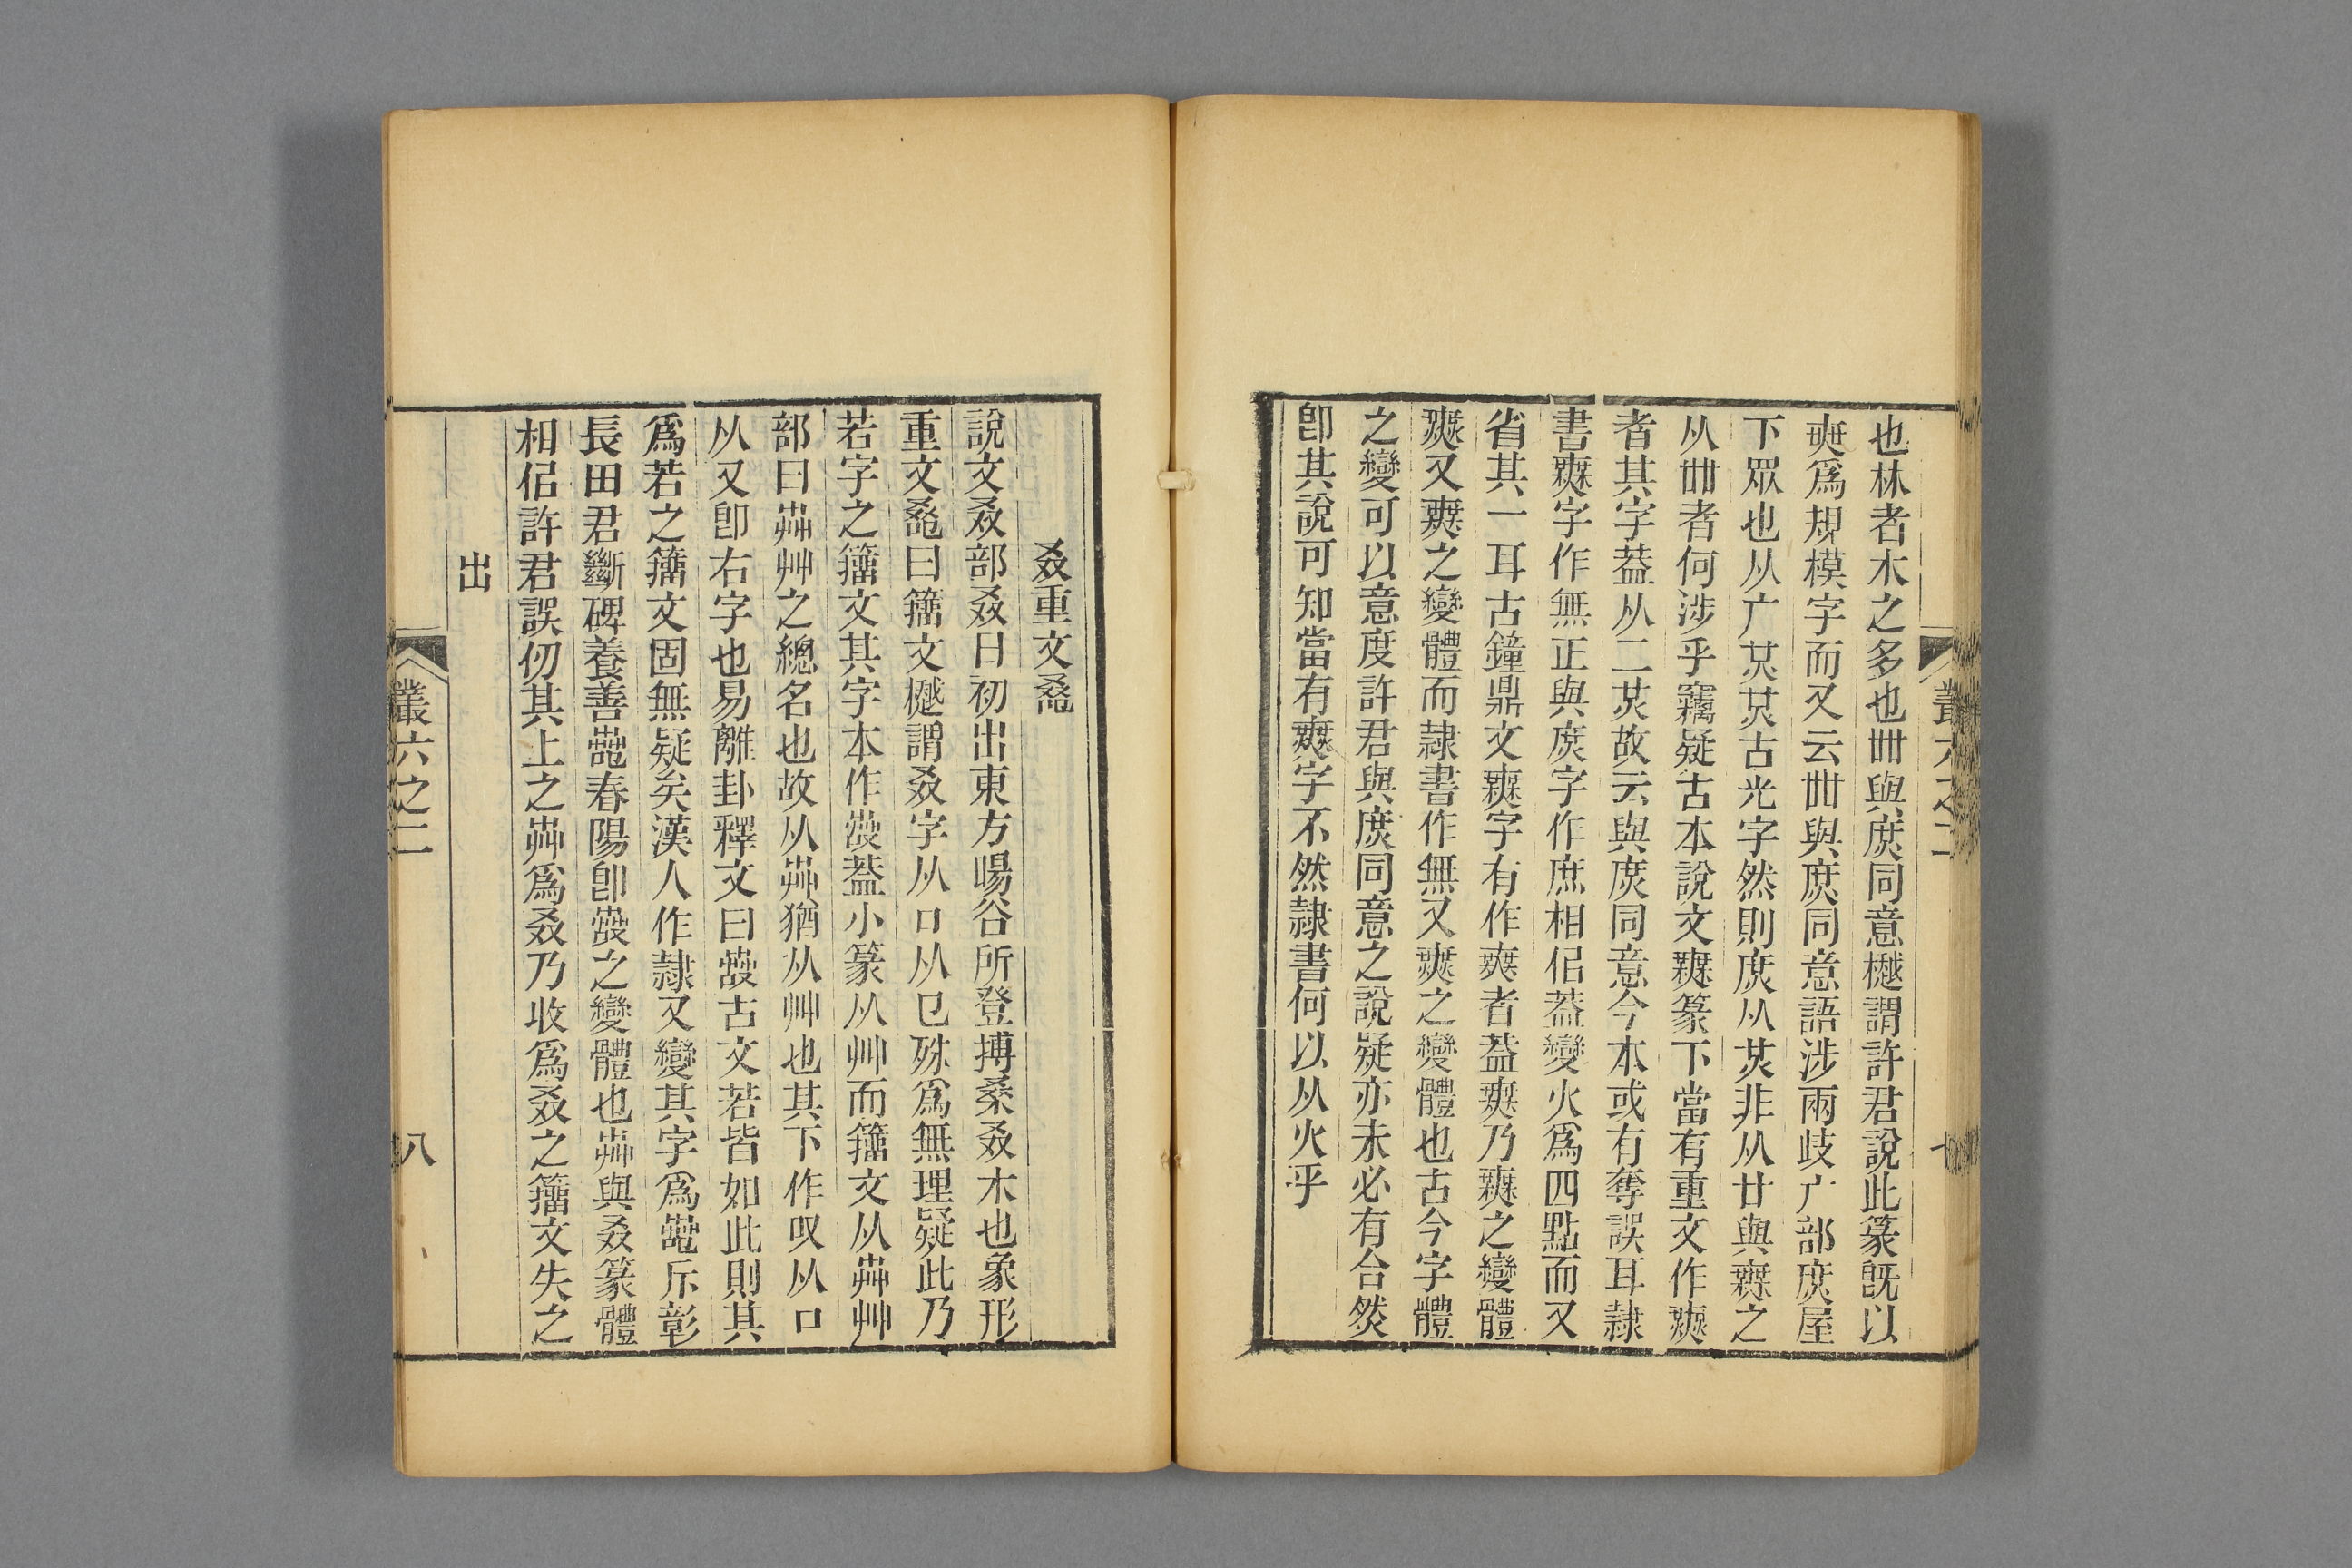 也林者木之多也卌與庶同意樾謂許君說此篆旣以
爲規模字而又云卌與庶同意語涉兩歧广部庶屋
下眾也从广炗炗古光字然則庶从炗非从廿與之
从卌者何涉乎竊疑古本說文篆下當有重文作
者其字葢从二炗故云與庶同意今本或有奪誤耳隸
書字作無正與庶字作庶相佀葢變火爲四點而又
省其一耳古鐘鼎文字有作者葢乃之變體
又之變體而隸書作無又之變體也古今字體
之變可以意度許君與庶同意之說疑亦未必有合然
卽其說可知當有字不然隸書何以从火乎
叢六之二
七
叒重文
說文叒部叒日初出東方暘谷所登榑桑叒木也象形
重文曰籒文樾謂叒字从口从㠯殊爲無理疑此乃
若字之籒文其字本作葢小篆从艸而籒文从茻艸
部曰茻艸之總名也故从茻猶从艸也其下作叹从口
从又卽右字也易離卦釋文曰古文若皆如此則其
爲若之籒文固無疑矣漢人作隸又變其字爲斥彰
長田君斷碑養善春陽卽之變體也茻與叒篆體
相佀許君誤仞其上之茻爲叒乃收爲叒之籒文失之
出
叢六之二
八